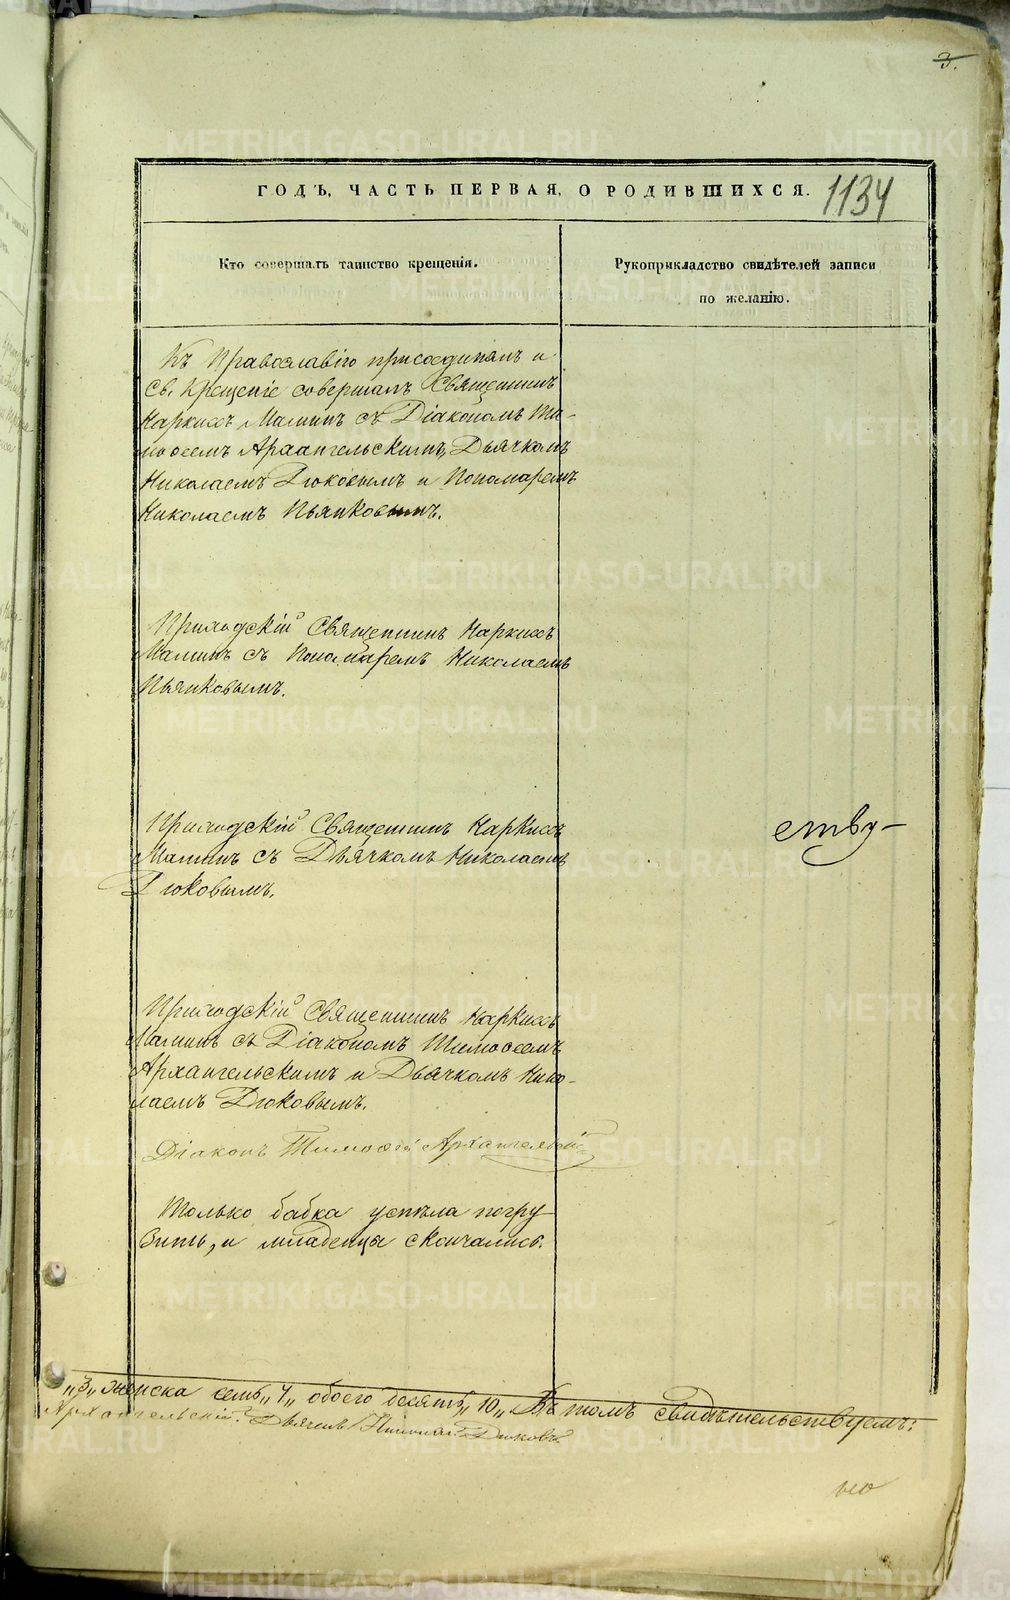 3.
ГОДЪ, ЧАСТЬ ПЕРВАЯ, О РОДИВШИХСЯ. 1134
Кто совершалъ таинство крещенія.
Рукоприкладство свидѣтелей записи
по желанію.
Къ Православію присоединялъ и
Св. Крещеніе совершалъ Священникъ
Наркиссъ Маминъ съ Діакономъ Ти-
моѳеемъ Архангельскимъ, Дьячкомъ
Николаемъ Дюковымъ и Пономаремъ
Николаемъ Пьянковымъ.
Приходскій Священникъ Наркиссъ
Маминъ съ Пономаремъ Николаемъ
Пьянковымъ.
Приходскій Священникъ Наркиссъ
Маминъ съ Дьячкомъ Николаемъ
Дюковымъ.
ству-
Приходскій Священникъ Наркиссъ
Маминъ съ Діакономъ Тимоѳеемъ
Архангельскимъ и Дьячкомъ Нико-
лаемъ Дюковымъ.
Діаконъ Тимоѳей Архангельскій
Только бабка успѣла погру
зить, и младенцы скончались.
„3„ женска семь „7„ обоего десять „10„ Въ томъ свидѣтельствуемъ:
Архангельскій. Дьячекъ Николай Дюковъ
METRIKI.GASO-URAL.RU